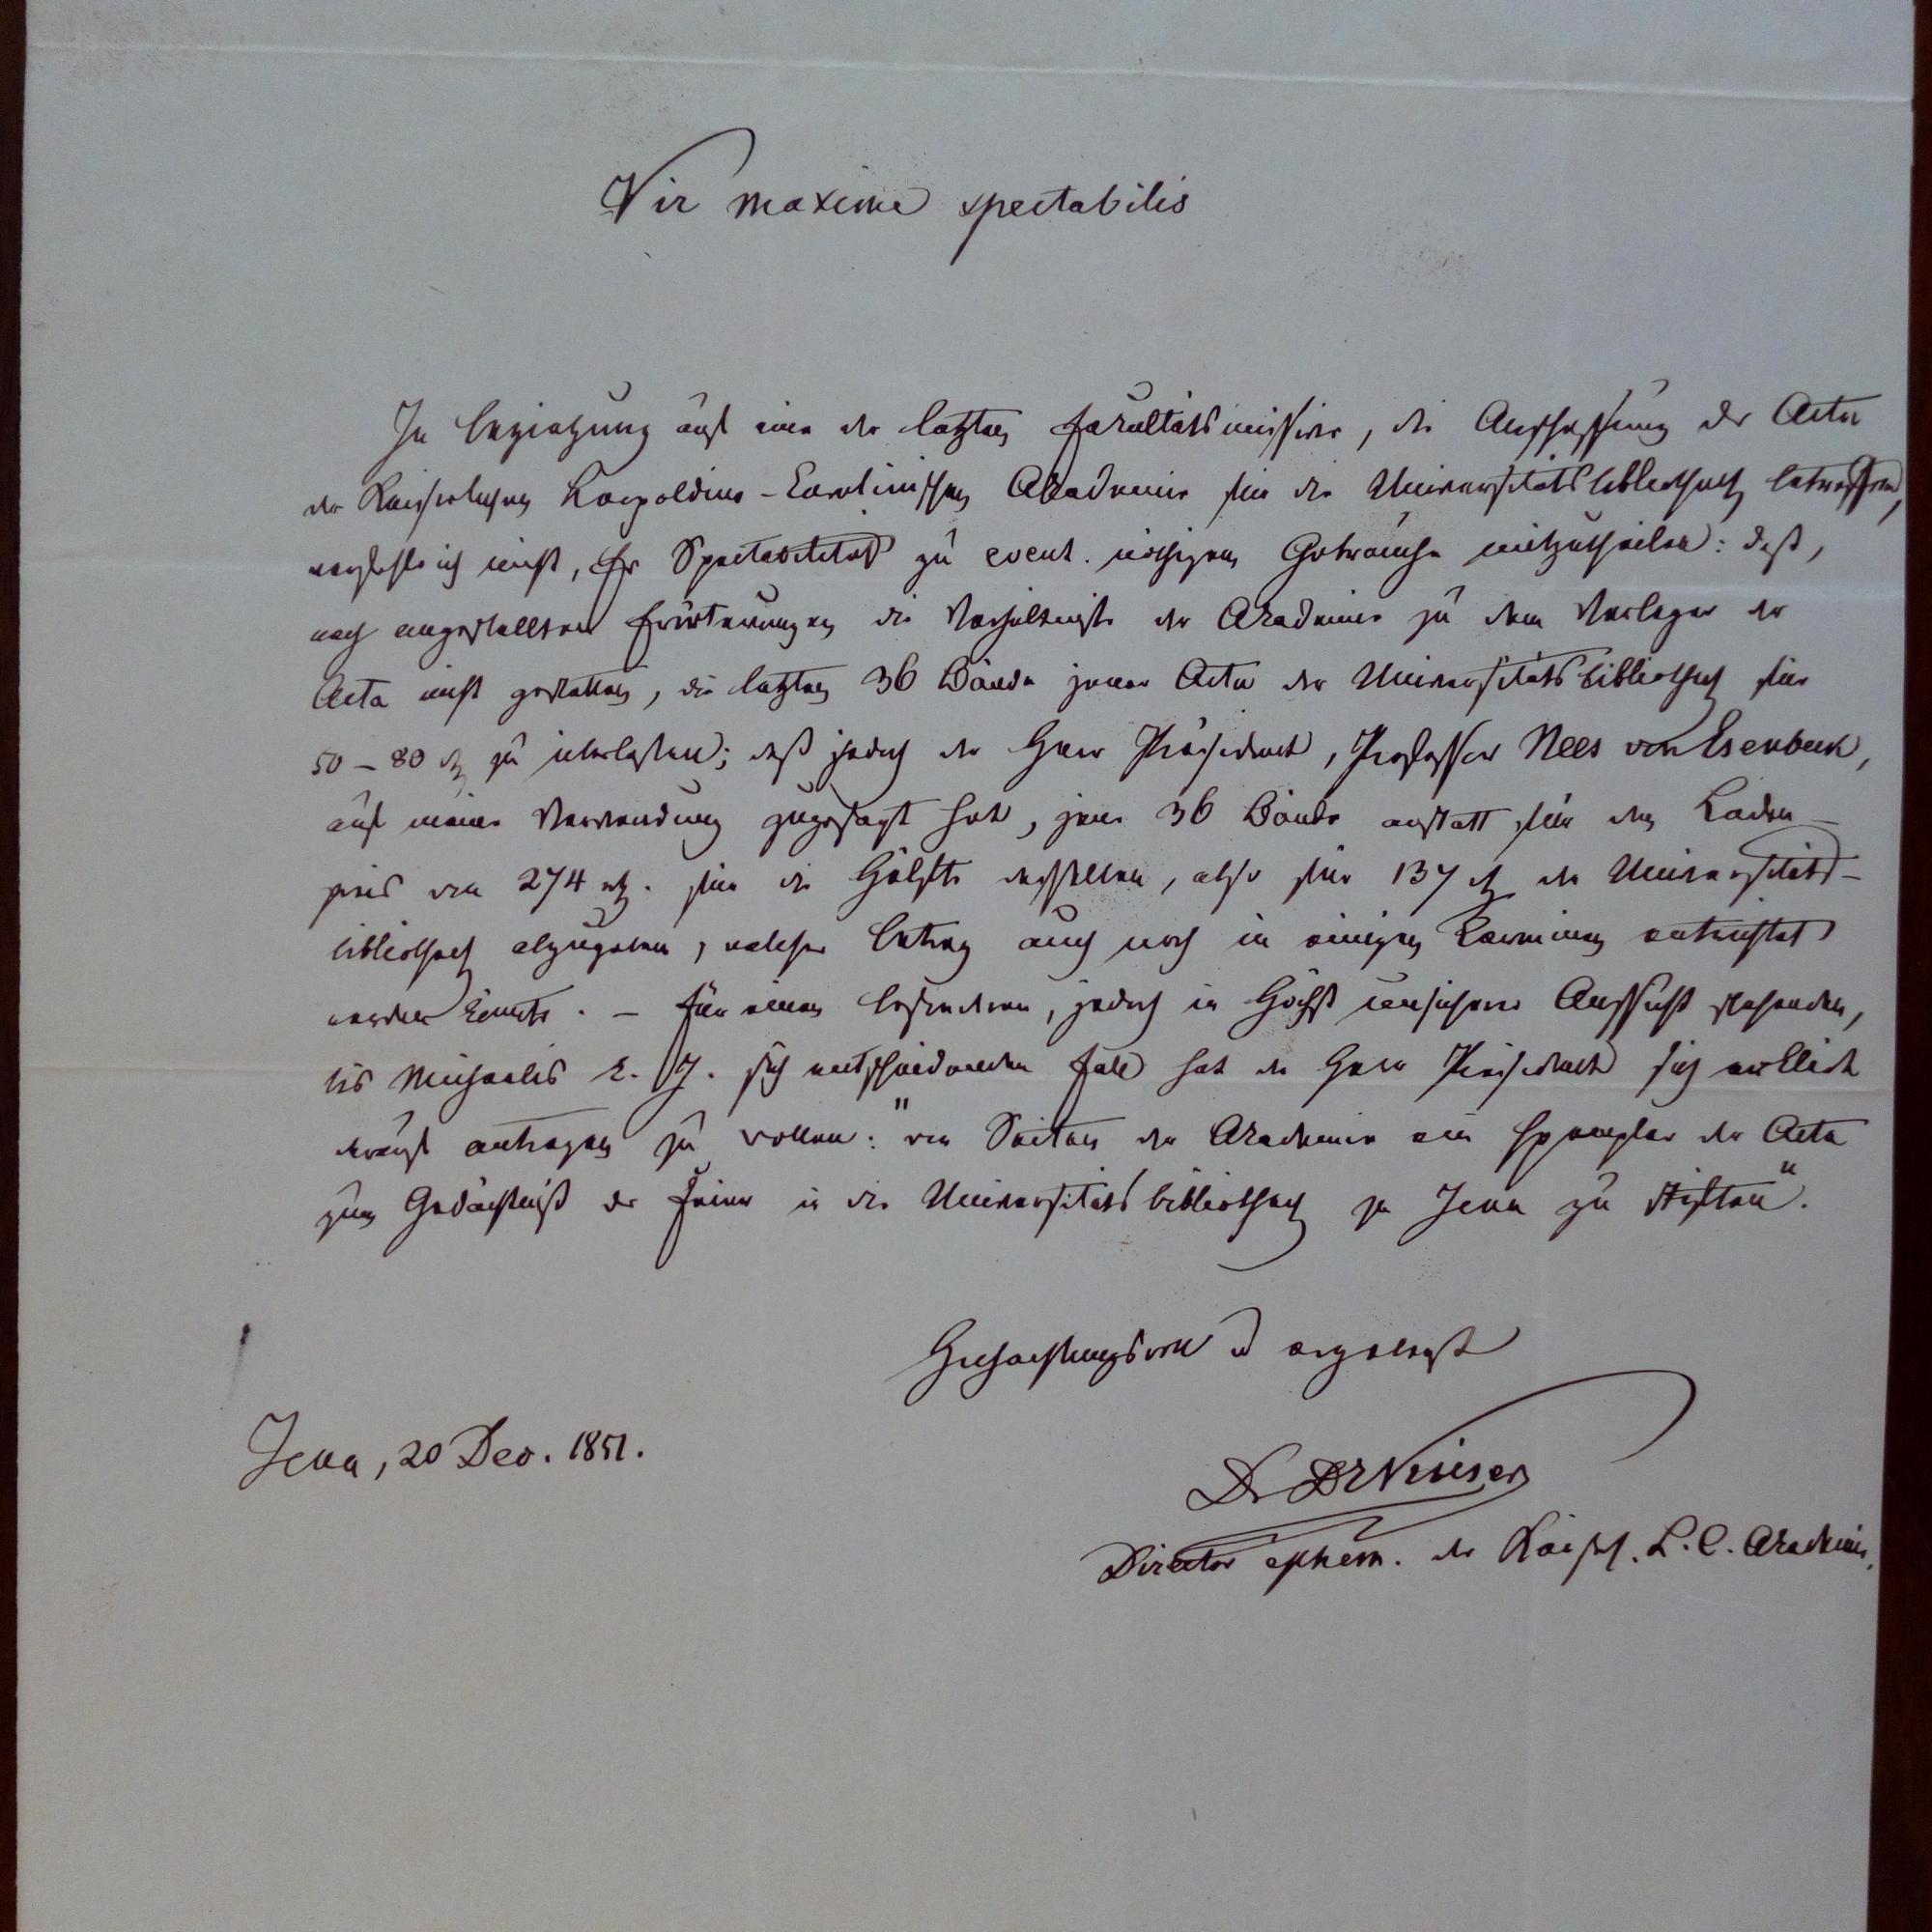 Vir maxime spectabilis
In Beziehung auf eine der letzten Facultätsmissive, die Anschaffung der Acta
der Kaiserlichen Leopoldino-Carolinischen Akademie für die Universitätsbibliothek betreffend,
verfehle ich nicht, Ew Spectabilität zu event. nöthigem Gebrauche mitzutheilen: daß,
nach angestellten Erörterungen die Verhältnisse der Akademie zu dem Verleger der
Acta nicht gestatten, die letzten 36 Bände jener Acta der Universitätsbibliothek für
50 – 80 rt zu überlassen; daß jedoch der Herr Präsident, Professor Nees von Esenbeck,
auf meine Verwendung zugesagt hat, jene 36 Bände anstatt für den Laden-
preis von 274 rt. für die Hälfte desselben, also für 137 rt der Universitäts-
bibliothek abzugeben, welcher Betrag auch noch in einigen Terminen entrichtet
werden könnte. – Für einen besonderen, jedoch in höchst unsicherer Aussicht stehenden,
bis Michaelis k. J. sich entscheidenden Fall hat der Herr Präsident sich erklärt
darauf antragen zu wollen: "von Seiten der Akademie ein Exemplar der Acta
zum Gedächtniß der Feier in die Universitätsbibliothek zu Jena zu stiften".
Hochachtungsvoll u ergebenst
Jena, 20 Dec. 1851.
Dr
Director ephem. der Kaiserl. L. C. Akademie.